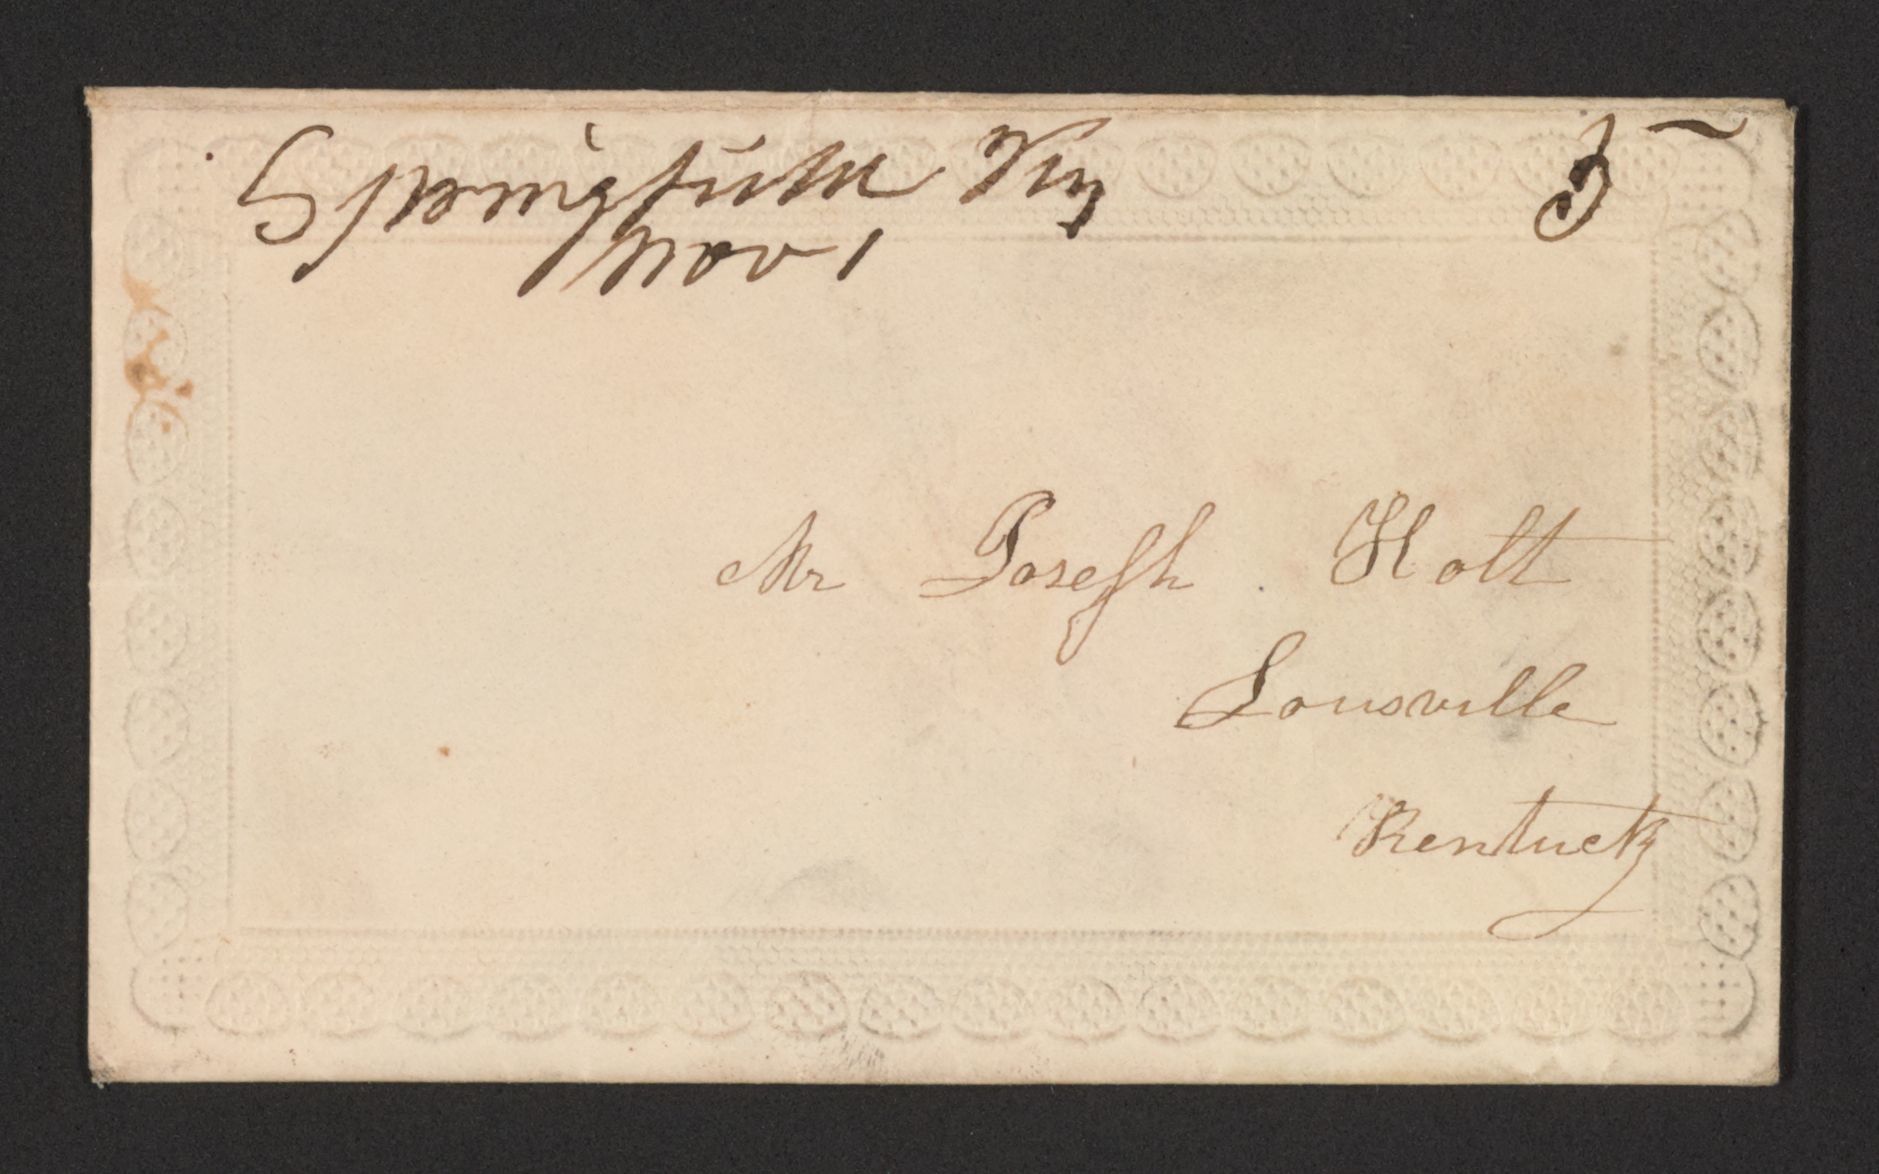 Springfield Ky 5
Nov 1
Mr Joseph Holt
Lousville
Kentucky